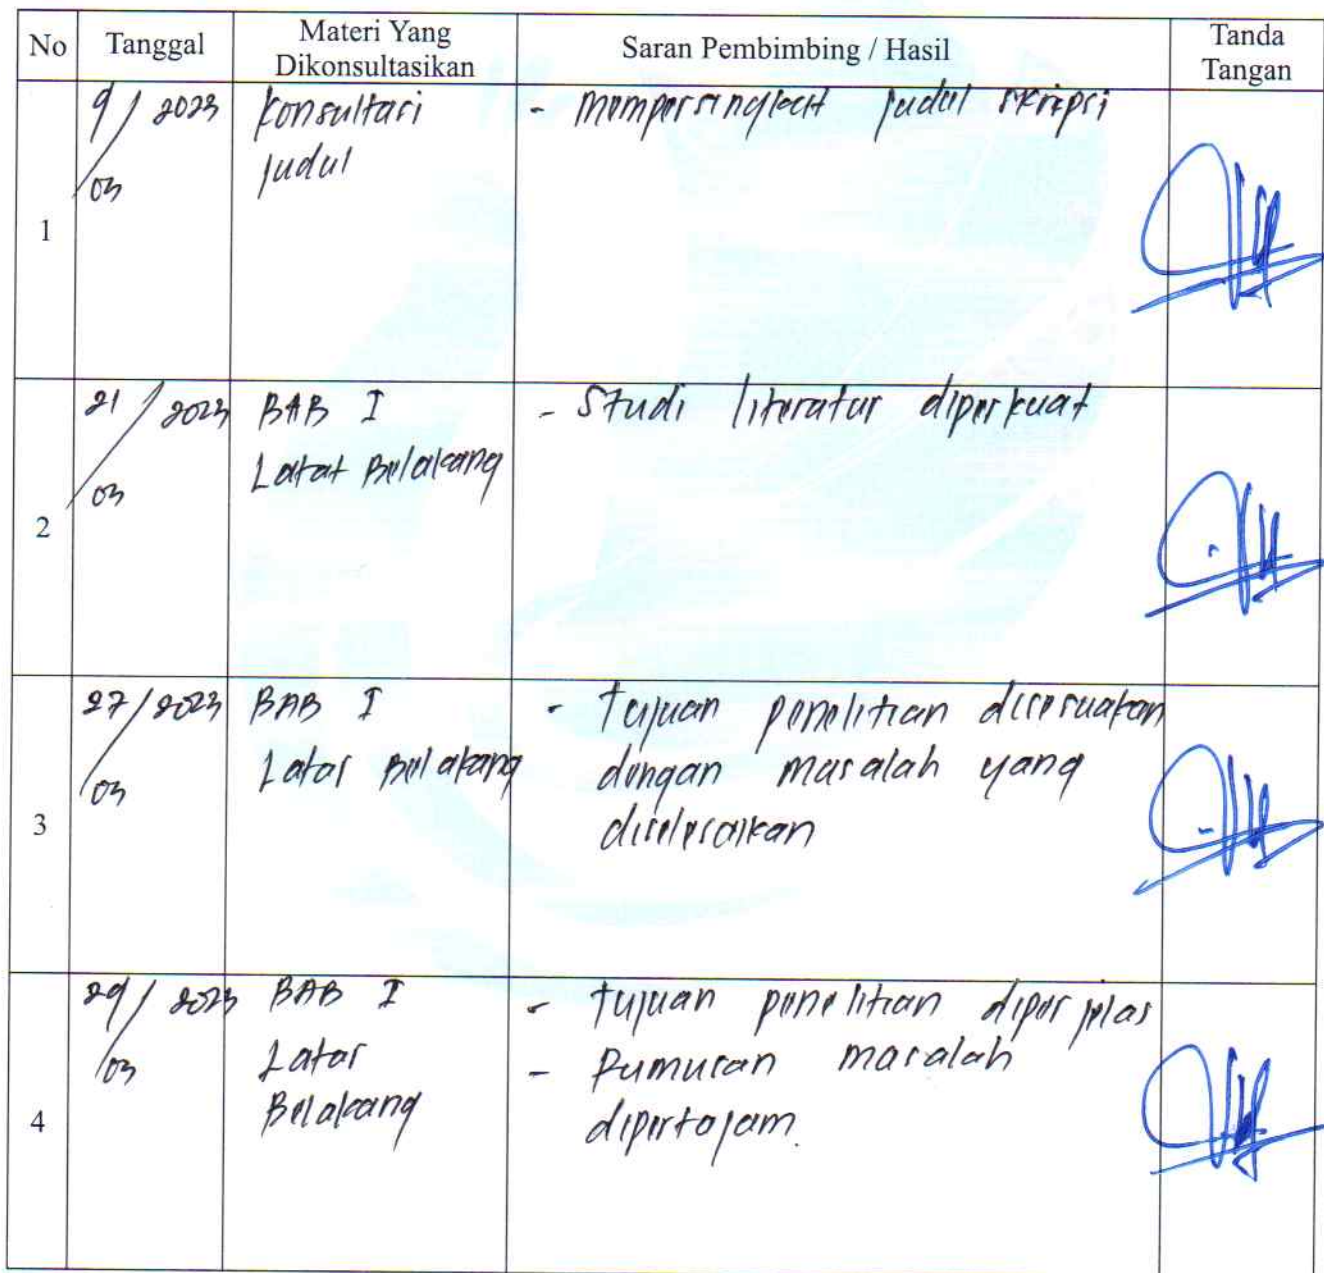 No Tanggal Materi Yang Dikonsultasikan Saran Pembimbing / Hasil Tanda Tangan
1
9/03 2023
Konsultasi
judul
- Mempersingkat judul skripsi
2
21/03 2023
BAB I
Latar Belakang
- Studi literatur diperkuat
3
27/03 2023
BAB I
Latar Belakang
- Tujuan penelitian disesuaikan
dengan masalah yang
diselesaikan
4
29/03 2023
BAB I
Latar
Belakang
- Tujuan penelitian diperjelas
- Rumusan masalah
dipertajam.